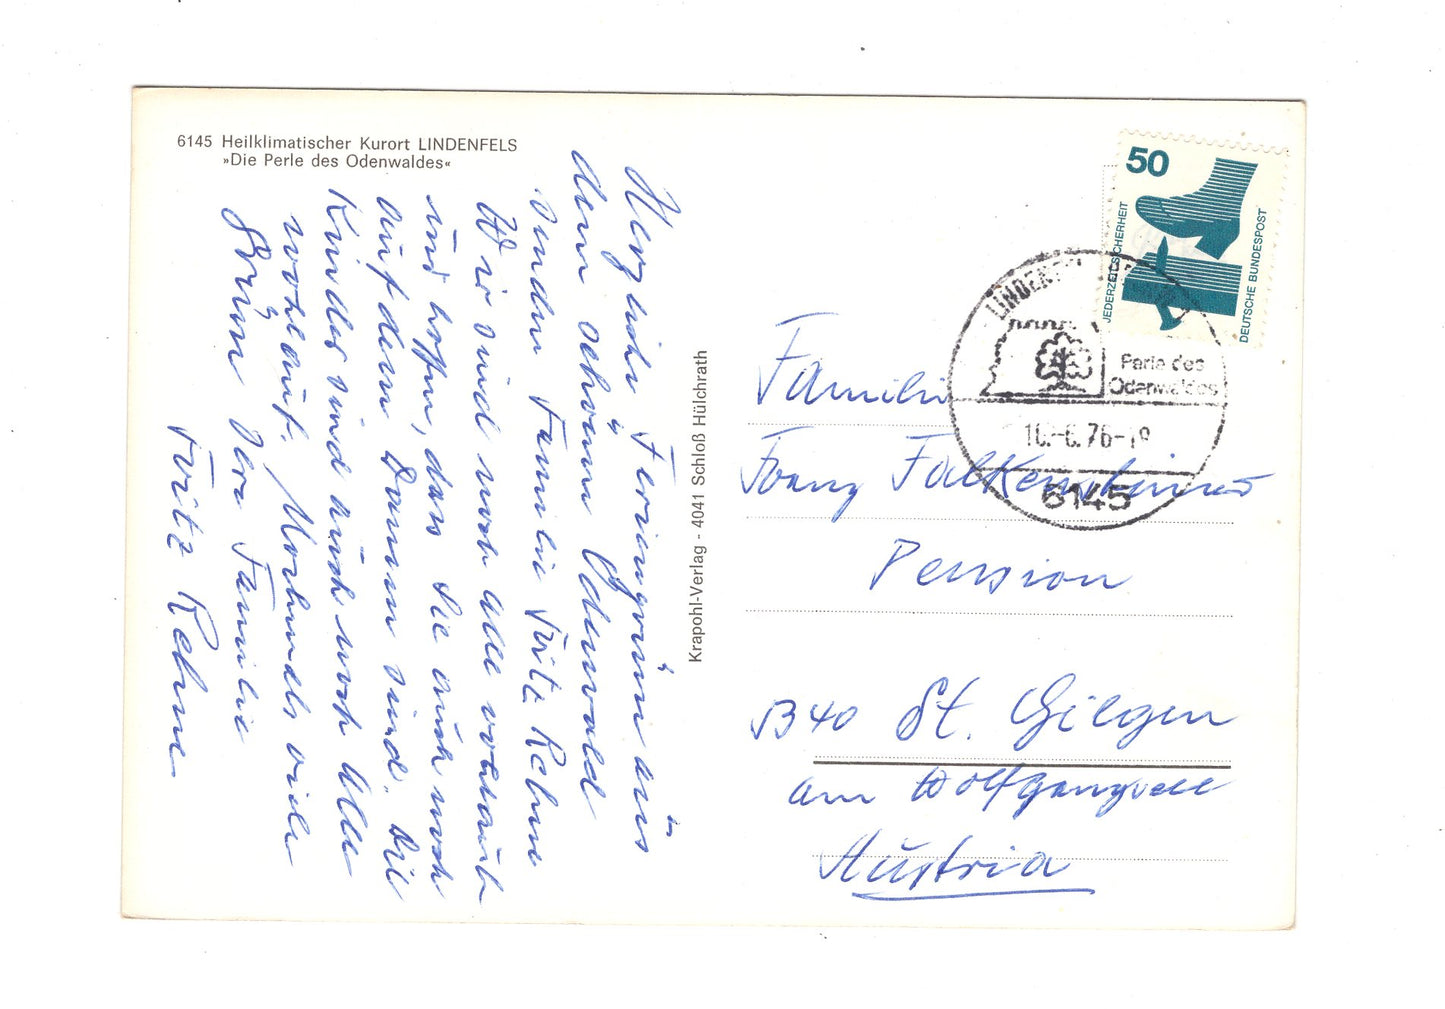 6145 Heilklimatischer Kurort LINDENFELS
»Die Perle des Odenwaldes«
Herzliche Feriengrüße aus
dem schönen Odenwald
senden Familie Fritz Rehm
Wir sind noch alle wohlauf
und hoffen, dass Sie auch noch
auf dem Damm sind. Die
Kinder sind auch noch alle
wohlauf. Mochmals viele
Grüße Ihre Familie
Fritz Rehm
Krapohl-Verlag - 4041 Schloß Hülchrath
50
JEDERZEIT SICHERHEIT
DEUTSCHE BUNDESPOST
Perle des
Odenwaldes
6145
Familie
Franz Falkensteiner
Pension
5340 St. Gilgen
am Wolfgangsee
Austria